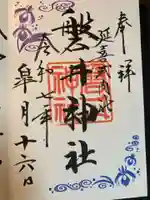 奉拝
延喜式内社
磐井神社
令和二年
皐月十六日